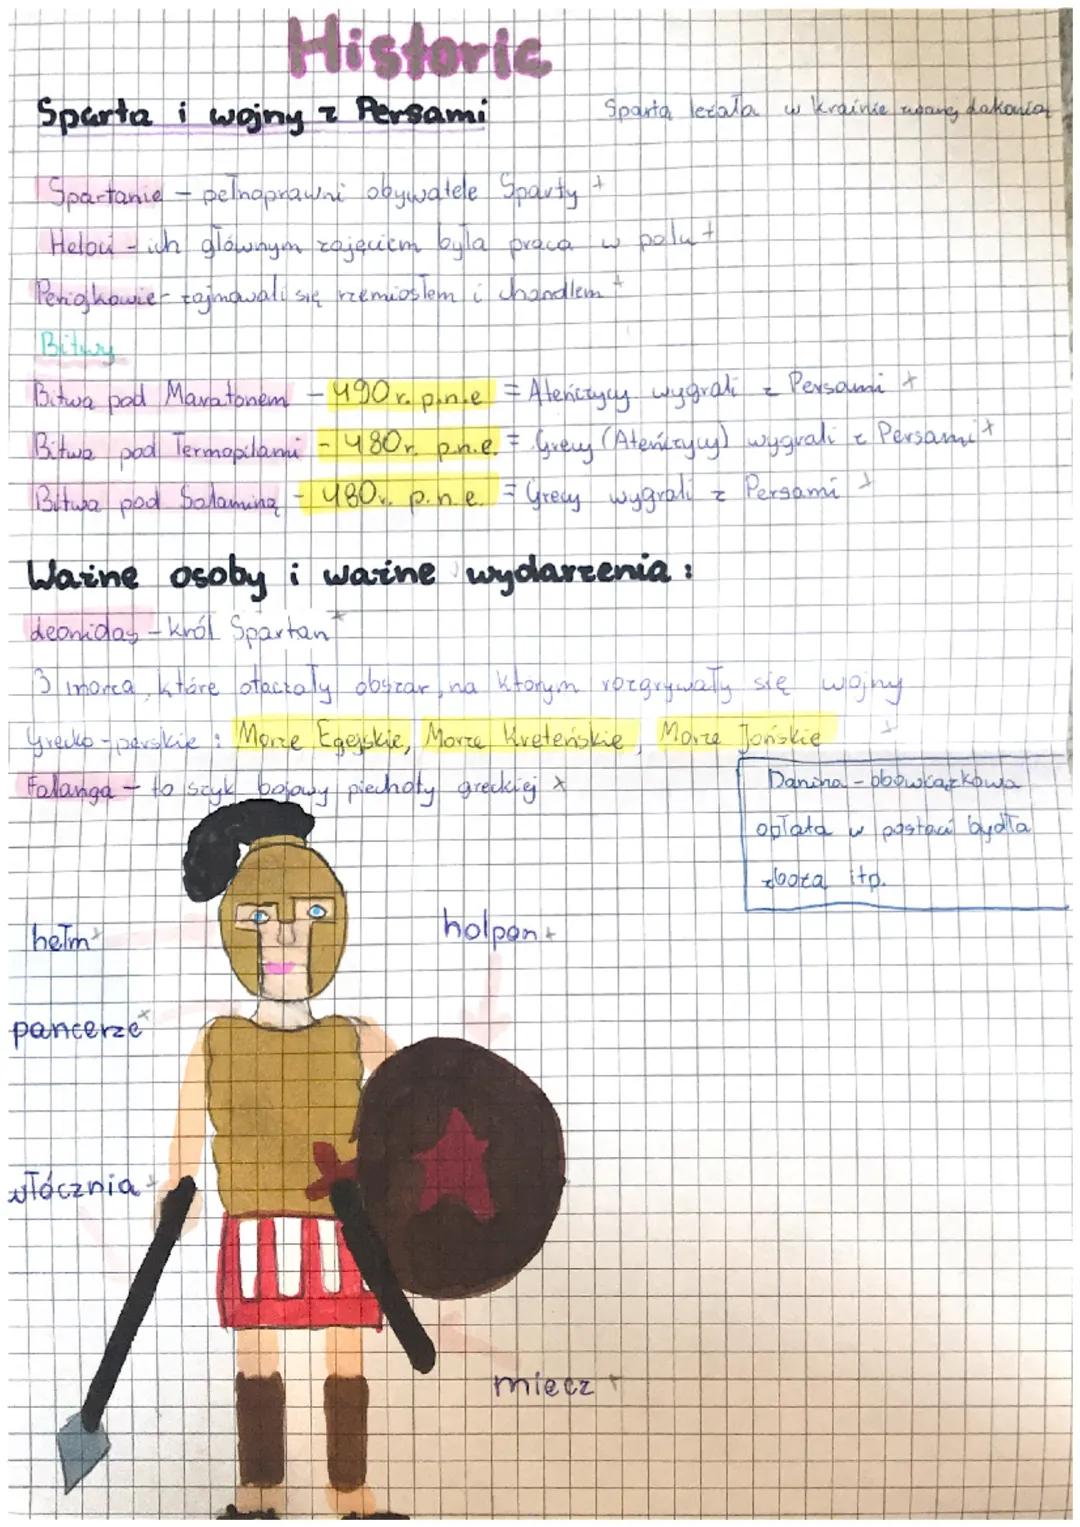 Historic
Sparta i wojny z Persami
Sparta leżała w krainie zwanej Lakonią
Spartanie - pełnoprawni obywatele Sparty +
Heloci - ich głównym zajęciem była praca w polu +
Periojkowie - zajmowali się rzemiosłem i chandlem +
Bitwy
Bitwa pod Maratonem - 490 r. p.n.e = Ateńczycy wygrali z Persami +
Bitwa pod Termopilami - 480 r. p.n.e. = Grecy (Ateńczycy) wygrali z Persami +
Bitwa pod Salaminą - 480 r. p.n.e. = Grecy wygrali z Persami +
Ważne osoby i ważne wydarzenia :
Leonidas - król Spartan +
3 morza, które otaczały obszar, na którym rozgrywały się wojny
Grecko - perskie : Morze Egejskie, Morze Kreteńskie, Morze Jońskie +
Falanga - to szyk bojowy piechoty greckiej x
Danina - obowiązkowa
opłata w postaci bydła
zboża itp.
hełm +
holpon +
pancerze x
włócznia +
miecz +